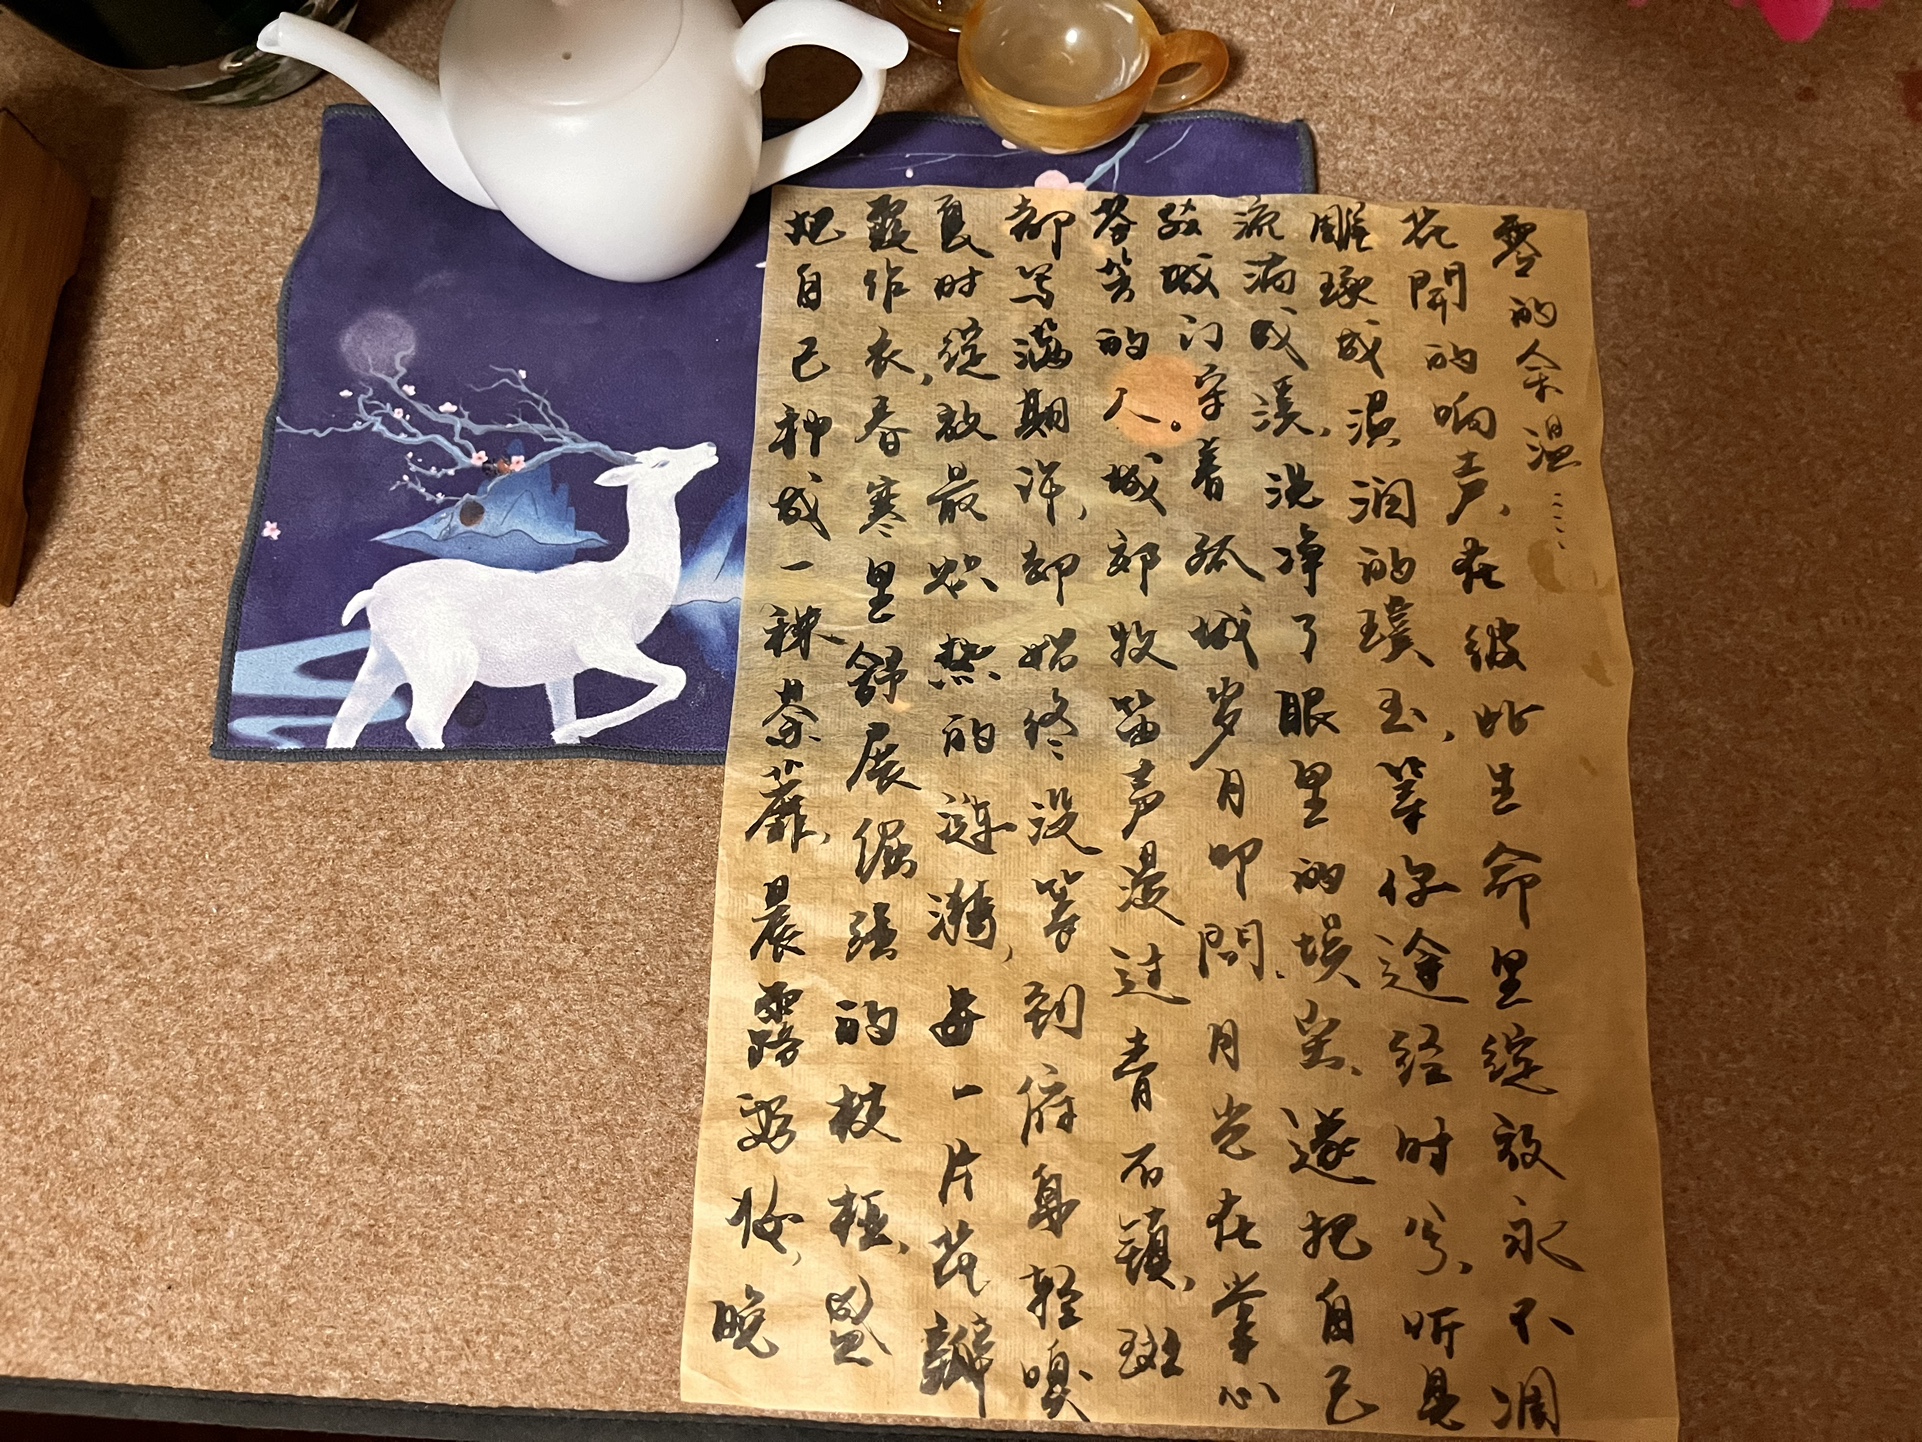 把自己种成一株荼蘼,晨露为妆,晚
霞作衣,春寒里舒展倔强的枝桠,盛
夏时绽放最炽热的涟漪,每一片花瓣
都写满期许,却始终没等到俯身轻嗅
荼苦的人。城郊牧笛声漫过青石镇,斑
驳城门守着孤城岁月叩问.月光在掌心
流淌成溪,洗净了眼里的埃尘.遂把自己
雕琢成温润的璞玉,等你途经时兮,听见
花開的响声,在彼此生命里绽放永不凋
零的余温……